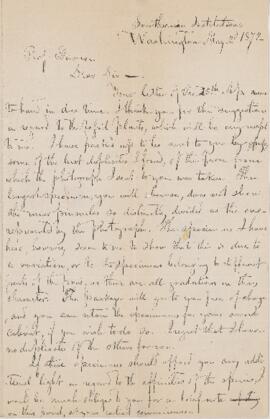 Smithsonian Institution
Washington May 3d 1872
Prof.
Dear Sir —
Your letter of the 25th Apr. came
to hand in due time. I thank you for the suggestion
in regard to the fossil plants, which will be
to me. I have packed up to be sent to you by
some of the best duplicates I found, of the from
which the photograph I sent to you was taken. The
largest specimen, you will I know, does not show
the divided as the one
represented by the photograph. The specimens I have
here, however, seem to me to show that this is due to
a variation, or to the specimens belonging to different
parts of the as there are all gradations in this
character. The package will go to you free of charge
and you can retain the specimens for your own
cabinet, if you wish to do so. I regret that I have
no duplicates of the others for you.
If these specimens should afford you any addi-
tional light in regard to the affinities of the species I
will be much obliged to you for a brief note
on this point, at your earliest convenience.